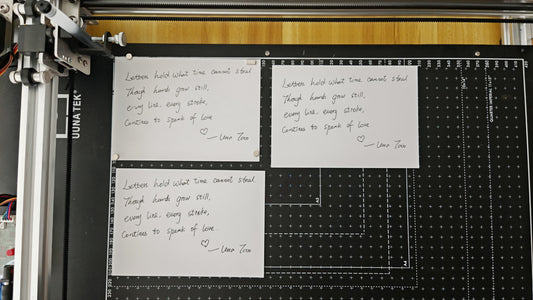 Letters hold what time cannot steal
Though hands grow still,
every line, every stroke,
Continues to speak of love
Letters hold what time cannot steal
Though hands grow still,
every line, every stroke,
Continues to speak of love
Letters hold what time cannot steal.
Though hands grow still,
every line, every stroke,
Continues to speak of love.
UUNATEK
A3